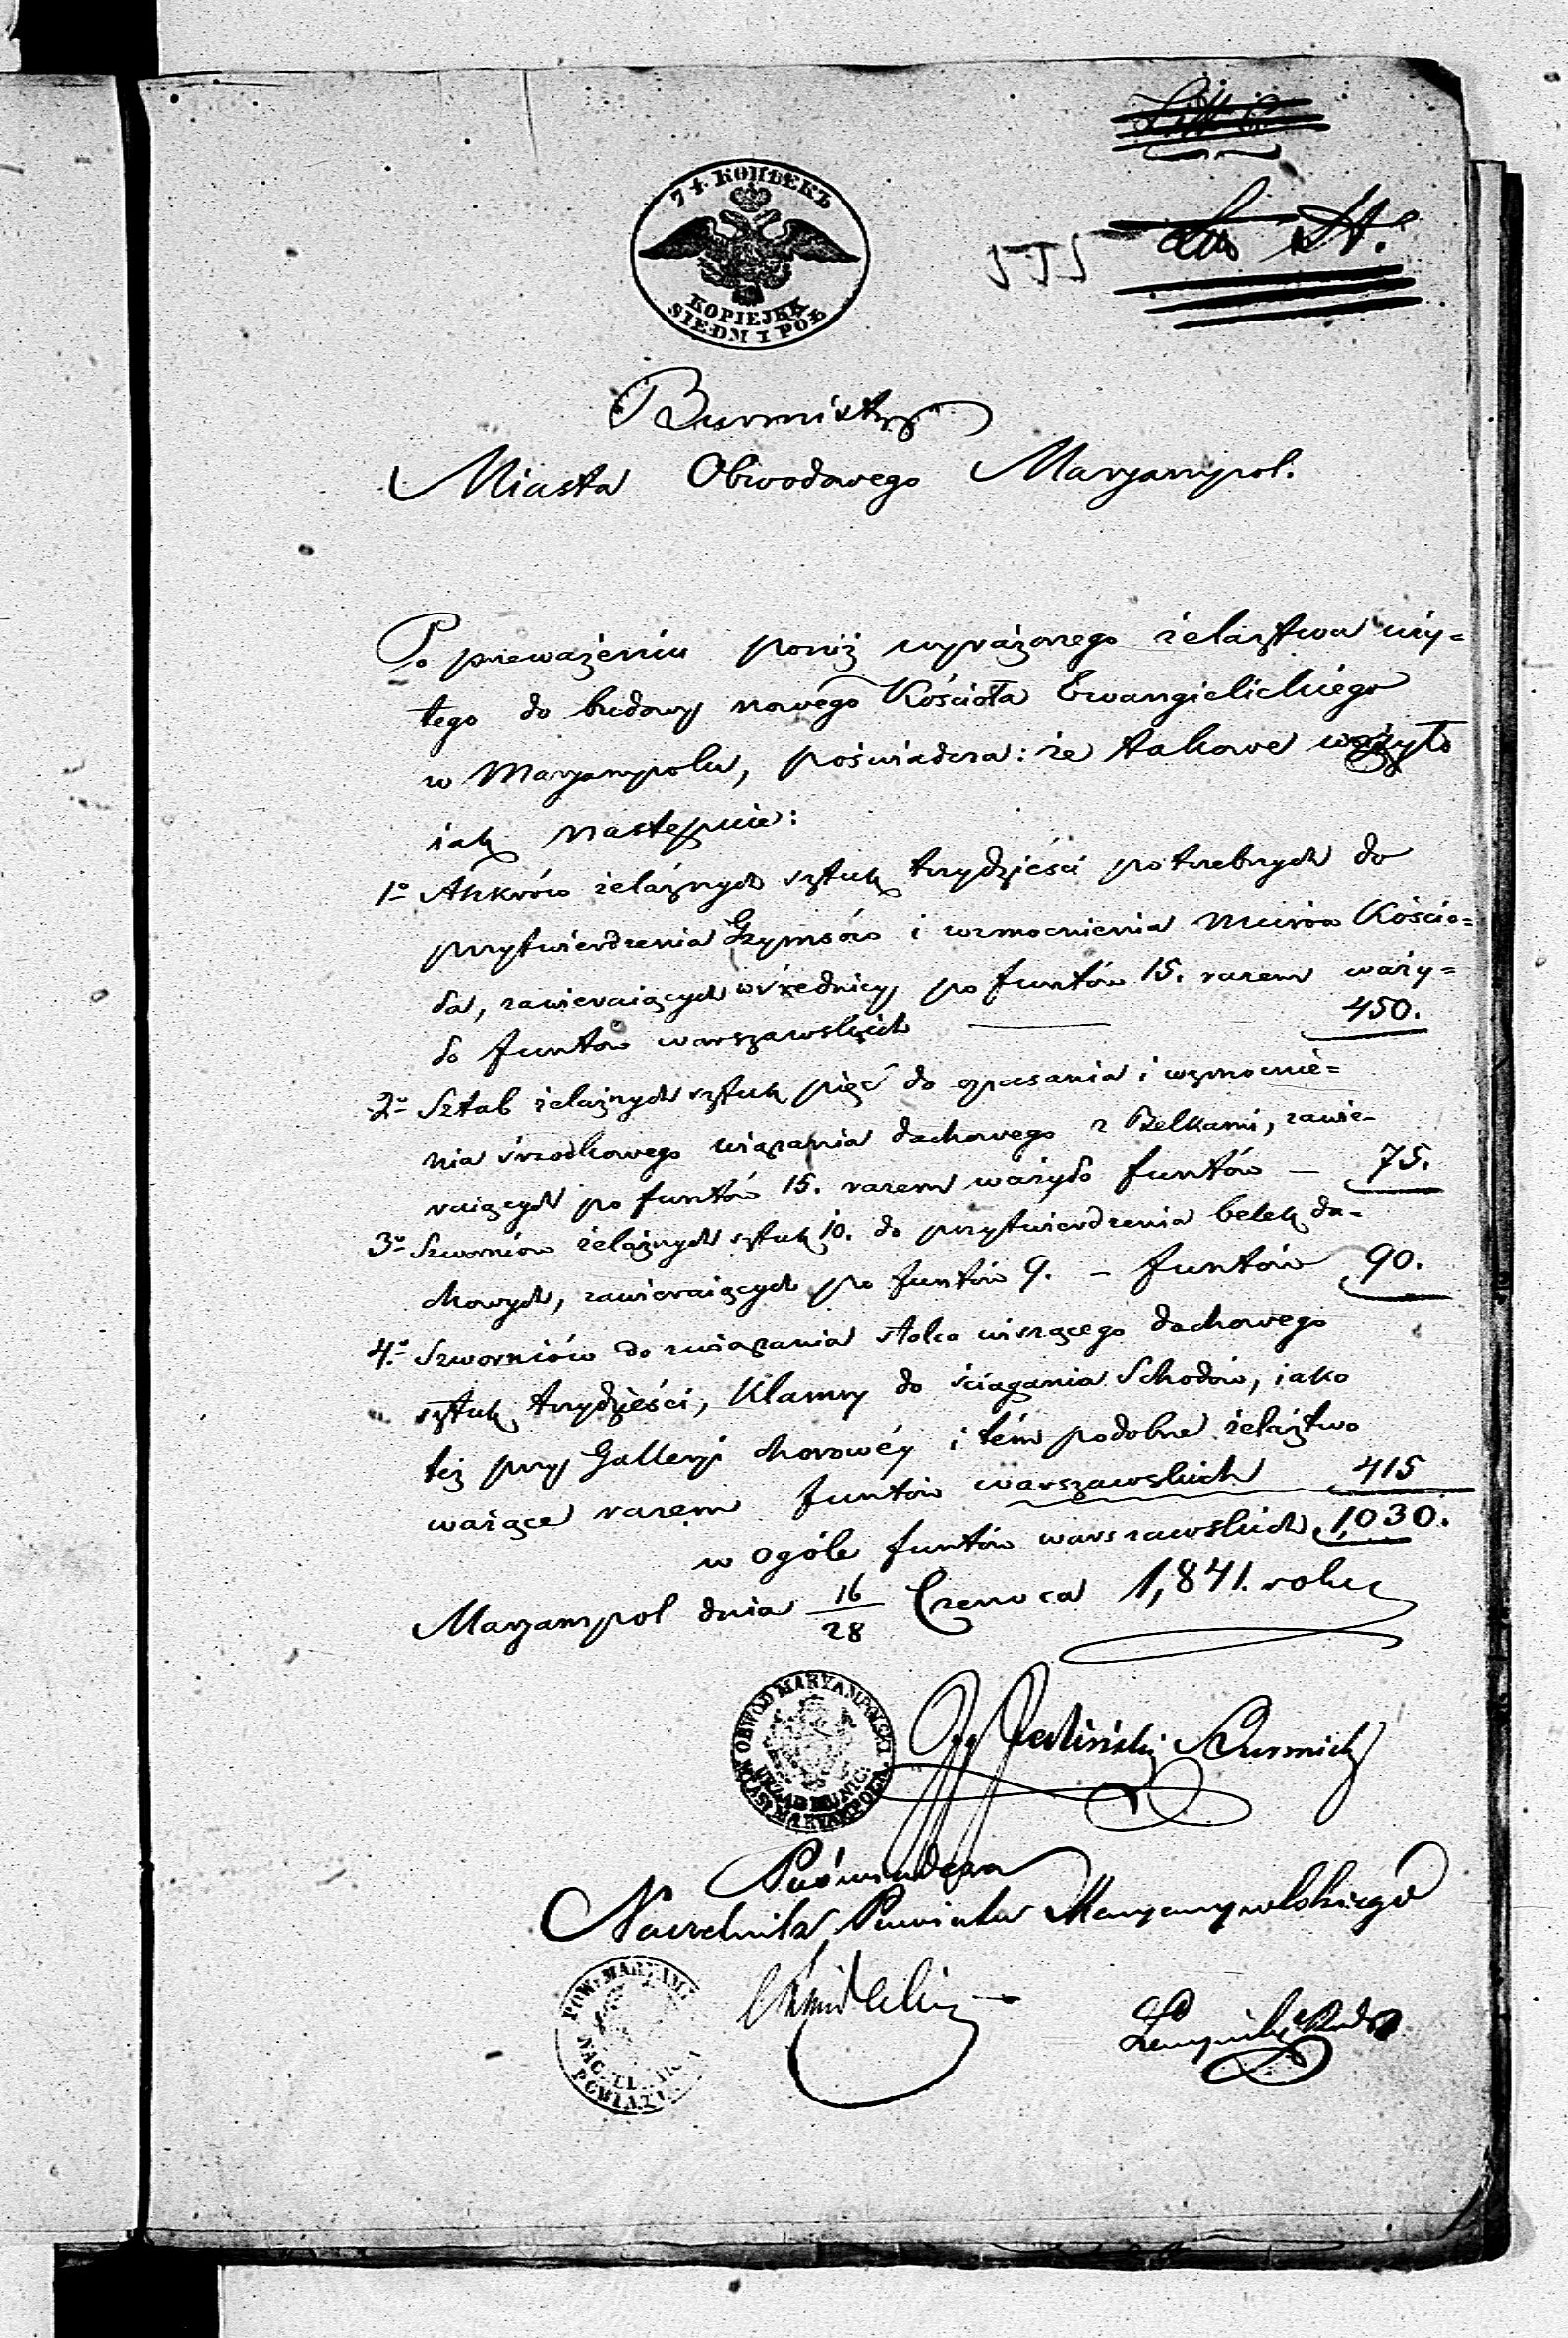 7½ КОПѢЕКЪ
KOPIEJEK
SIEDM I PÓŁ
Burmistrz
Miasta Obwodowego Maryampol.
Po przeważeniu poniż wyrażonego żelaztwa uży=
tego do budowy nowego Kościoła Ewangielickiego
w Maryampolu, poświadcza: że takowe ważyło
iak następuie:
1º Ankrów żelaznych sztuk trzydzieści potrzebnych do
przytwierdzenia Gzymsów i wzmocnienia murów Kościo=
ła, zawieraiących w średnicy po funtów 15. razem waży=
ło funtów warszawskich — 450.
2º Sztab żelaznych sztuk pięć do opasania i wzmocnie=
nia śrzodkowego wiązania dachowego z Belkami, zawie-
raiących po funtów 15. razem ważyło funtów — 75.
3º Szworniów żelaznych sztuk 10. do przytwierdzenia belek da=
chowych, zawieraiących po funtów 9. — funtów 90.
4º Szworniów do związania stolca wiszącego dachowego
sztuk trzydzieści, Klamry do ściągania Schodów, iako
też przy Galleryi chorowéy i tém podobne żelaztwo
ważące razem funtów warszawskich 415
w ogóle funtów warszawskich 1,030.
Maryampol dnia 16/28 Czerwca 1,841. roku
OBWÓD MARYAMPOLSKI
URZĄD MUNIC:
MIASTA MARYAMPOLA
Burmistrz
Poświadcza
Naczelnik Powiatu Maryampolskiego
POW: MARYAM:
NACZELNIK
POWIATU